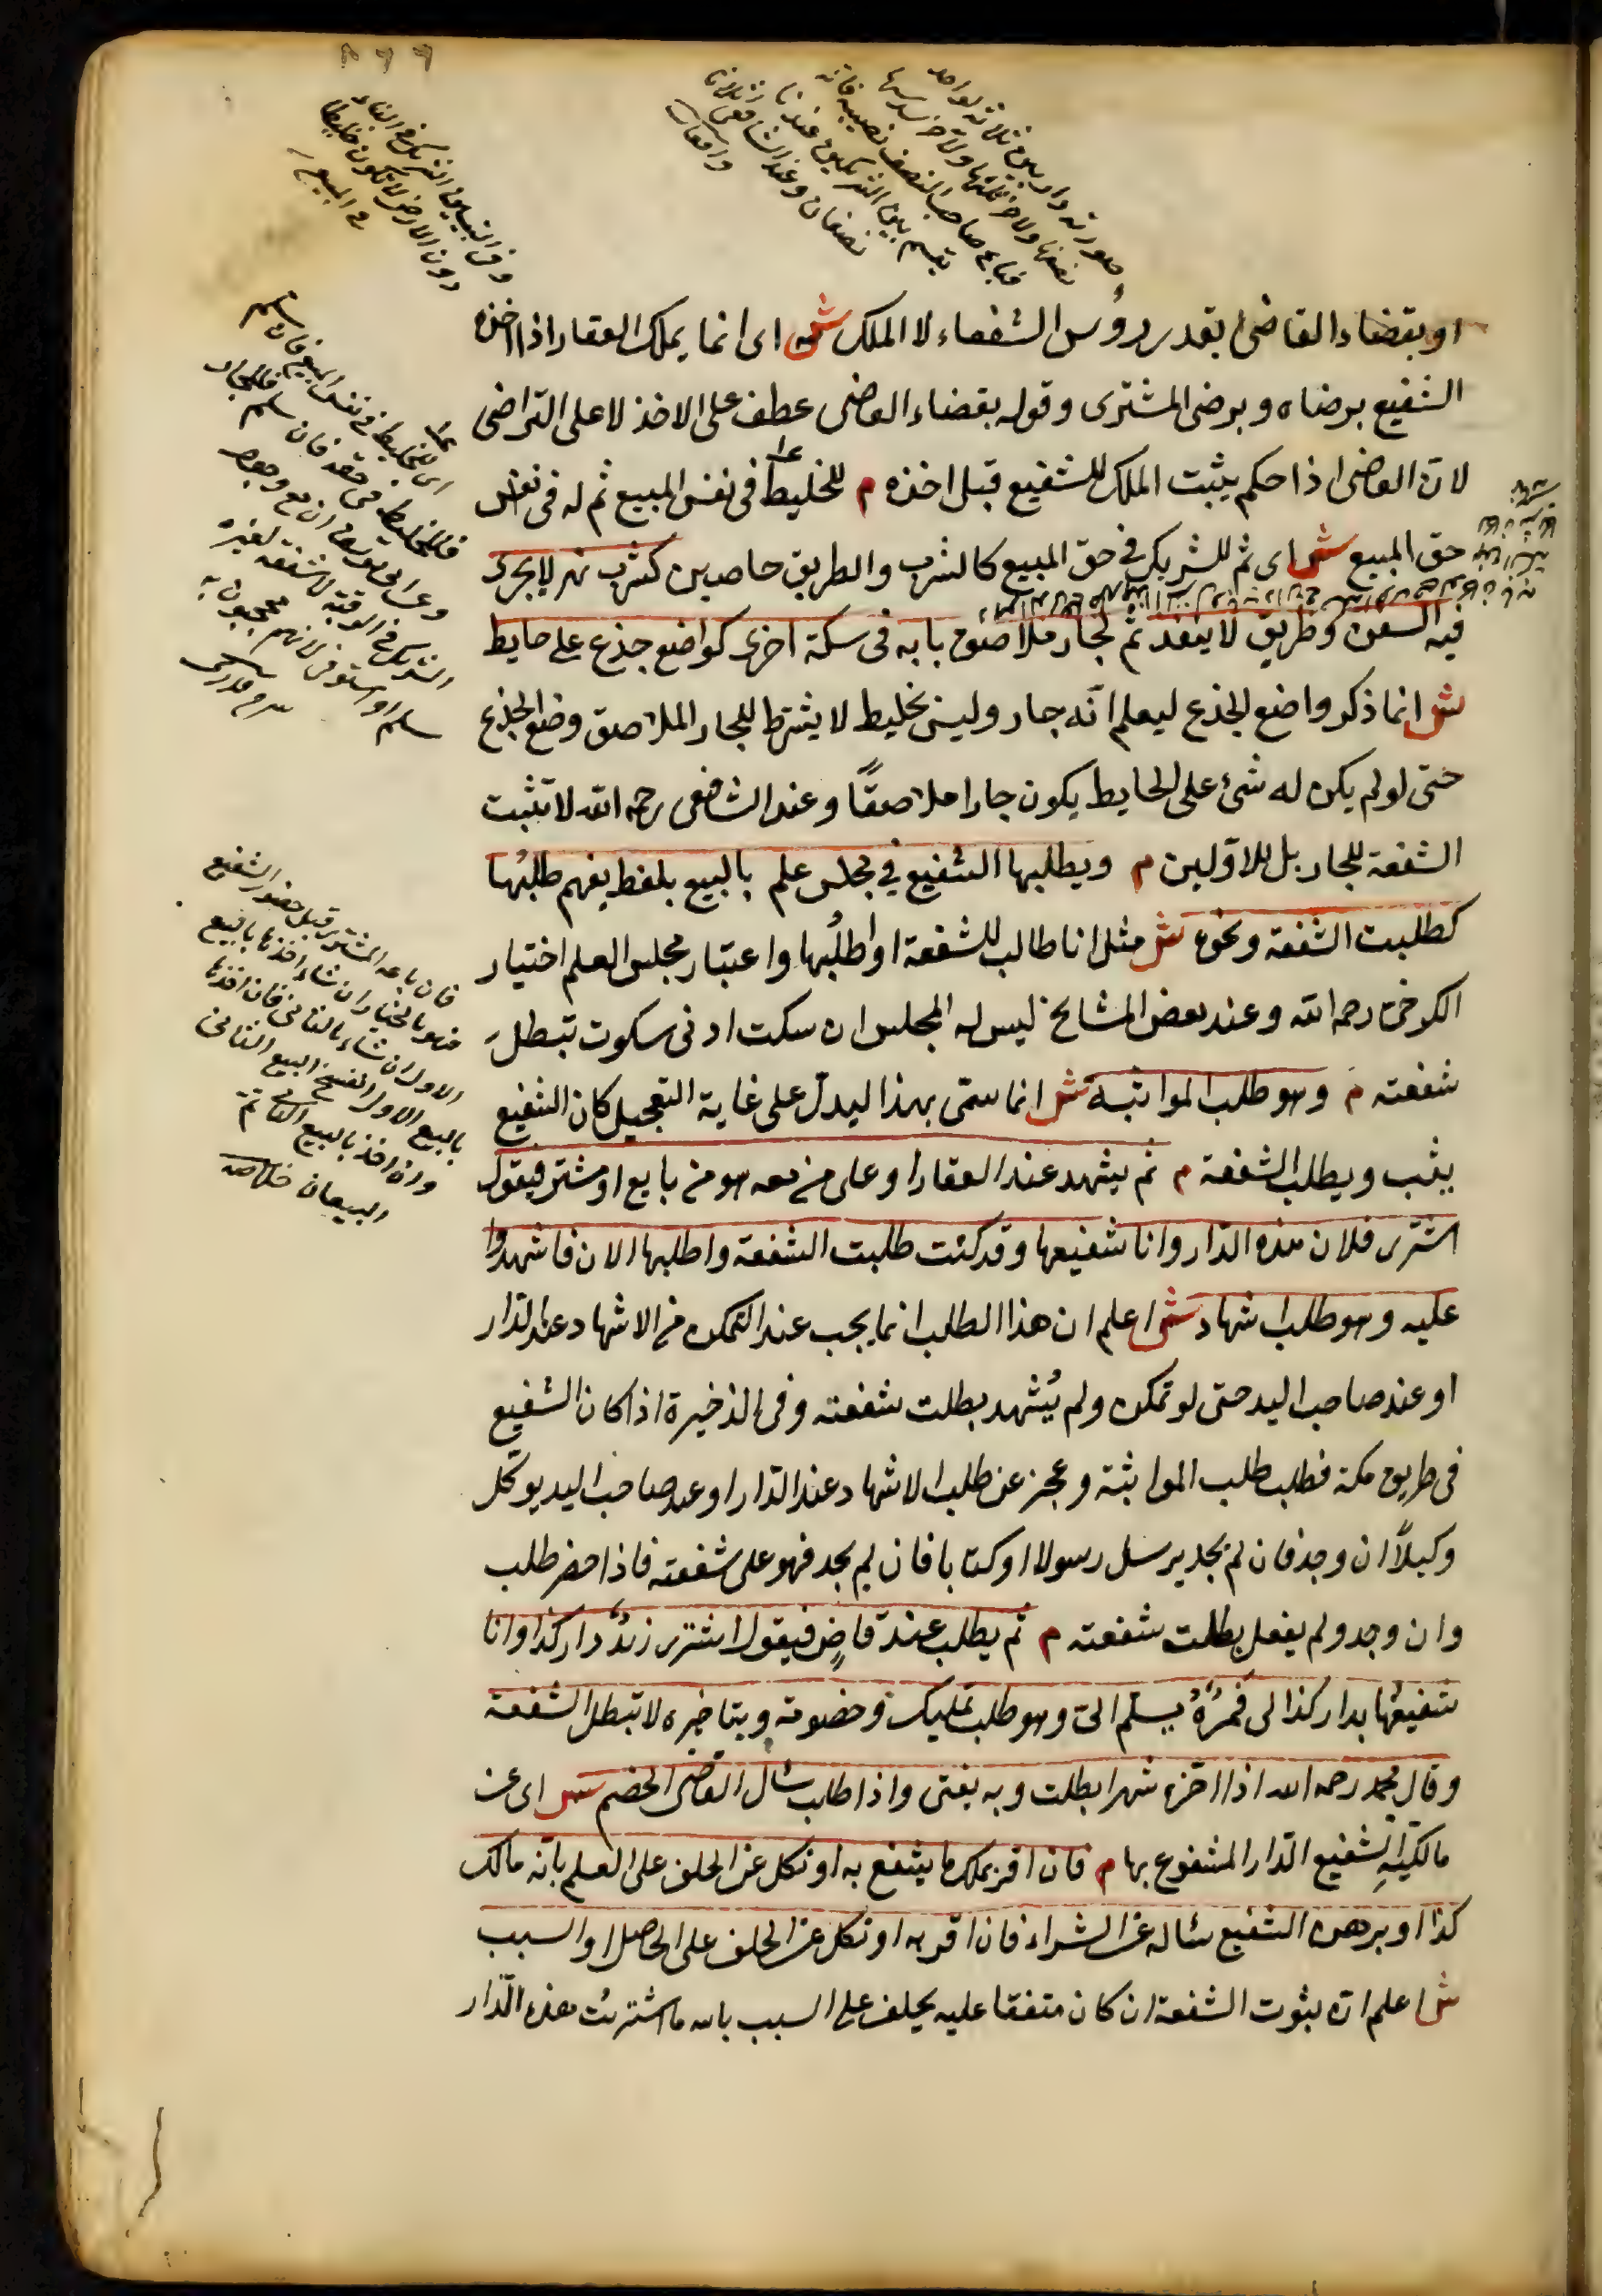 او بقضاء القاضى بقدر رؤس الشفعاء لا الملك ش اى انما يملك العقار اذا اخذه
الشفيع برضاه و برضى المشترى و قوله بقضاء القاضى عطف على الاخذ لا على التراضى
لان القاضى اذا حكم يثبت الملك للشفيع قبل اخذه م للخليط فى نفس المبيع ثم له فى نفس
حق المبيع ش اى ثم للشريك فى حق المبيع كالشرب و الطريق خاصين كشرب نهر لا يجرى
فيه السفن و طريق لا ينفذ ثم لجار ملاصق بابه فى سكة اخرى كواضع جذع على حايط
ش انما ذكر واضع الجذع ليعلم انه جار و ليس بخليط لا يشترط للجار الملاصق وضع الجذع
حتى لو لم يكن له شئ على الحايط يكون جارا ملاصقًا و عند الشافعى رحمه الله لا تثبت
الشفعة للجار بل للاولين م و يطلبها الشفيع فى مجلس علم بالبيع بلفظ يفهم طلبُها
كطلبت الشفعة و نحوه ش مثل انا طالب للشفعة او اطلُبها و اعتبار مجلس العلم اختيار
الكرخى رحمه الله و عند بعض المشايخ ليس له المجلس ان سكت ادنى سكوت تبطل
شفعته م و هو طلب المواثبة ش انما سمى بهذا ليدل على غاية التعجيل كان الشفيع
يثب و يطلب الشفعة م ثم يشهد عند العقار او على من معه هو من بايع او مشتر فيقول
اشترى فلان هذه الدار و انا شفيعها و قد كنت طلبت الشفعة و اطلبها الان فاشهدوا
عليه و هو طلب اشهاد ش اعلم ان هذا الطلب انما يجب عند التمكن من الاشهاد عند الدار
او عند صاحب اليد حتى لو تمكن و لم يُشهد بطلت شفعته و فى الذخيرة اذا كان الشفيع
فى طريق مكة فطلب طلب المواثبة و عجز عن طلب الاشهاد عند الدار او عند صاحب اليد يوكل
وكيلاً ان وجد فان لم يجد يرسل رسولا او كتابا فان لم يجد فهو على شفعته فاذا حضر طلب
و ان وجد و لم يفعل بطلت شفعته م ثم يطلب عند قاضٍ فيقول اشترى زيدٌ دار كذا و انا
شفيعُها بدار كذا لى فمُرْهُ يسلم الى و هو طلب تمليك و خصومة و بتاخيره لا تبطل الشفعة
و قال محمد رحمه الله اذا اخره شهرا بطلت و به يفتى و اذا طلب سأل القاضى الخصم ش اى عن
مالكية الشفيع الدار المشفوع بها م فان اقر بملك ما يشفع به او نكل عن الحلف على العلم بانه مالك
كذا او برهن الشفيع سأله عن الشراء فان اقر به او نكل عن الحلف على الحاصل او السبب
ش اعلم ان ثبوت الشفعة ان كان متفقا عليه يحلف على السبب بالله ما اشتريت هذه الدار
فان باعه المشترى قبل حضور الشفيع
فهو بالخيار ان شاء اخذها بالبيع
الاول و ان شاء بالثانى فان اخذها
بالبيع الاول انفسخ البيع الثانى
و ان اخذ بالبيع الثانى تم
البيعان خلاصه